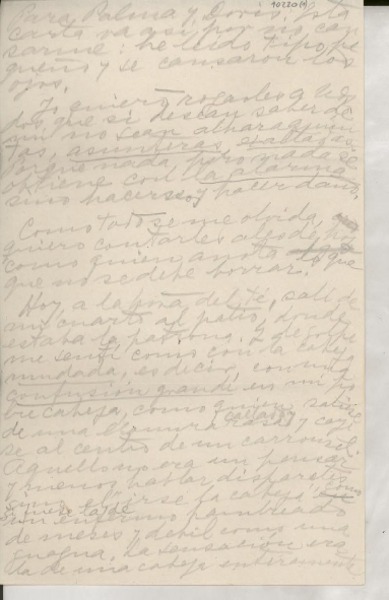 10220(4)
Para Palma y Doris. Esta
carta va así, por no can
sarme: he leído tipo pe
queño y se cansaron los
ojos.
Yo quiero rogarles a Uds.
dos que si desean saber de
mí no sean alharaquien
tas,
porque nada, pero nada se
obtiene con la alarma
sino hacerse y hacer daño.
Como todo se me olvida,
quiero contarles desde hoy
como quien anota lo que
que no se debe borrar.
Hoy, a la hora del té, salí de
mi cuarto al patio, donde
estaba la patrona. Y de golpe
me sentí como con la cabeza
mudada, es decir, con una
confusión grande en mi po
bre cabeza, como quien saliera
de una llanura rasa y callada y cay
se al centro de un carrousel.
Aquello no era un pensar
y menos hablar disparates
sino
como
un enfermo
de meses y débil como una
guagua. La sensación era
la de una cabeza enteramente